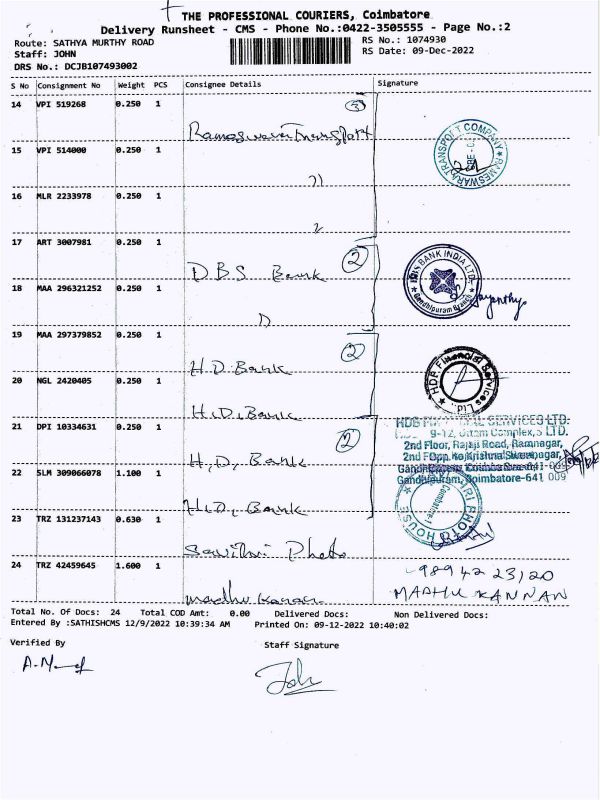 THE PROFESSIONAL COURIERS, Coimbatore
Delivery Runsheet - CMS - Phone No.:0422-3505555 - Page No.:2
Route: SATHYA MURTHY ROAD
RS No.: 1074930
Staff: JOHN
RS Date: 09-Dec-2022
DRS No.: DCJB107493002
S No Consignment No Weight PCS Consignee Details Signature
14 VPI 519268 0.250 1 3
Rameswara Transport
TRANSPORT COMPANY RAMESWARA
15 VPI 514000 0.250 1
16 MLR 2233978 0.250 1
17 ART 3007981 0.250 1 2
DBS Bank
DBS BANK INDIA LTD.
Gandhipuram Branch
Jayanthy
18 MAA 296321252 0.250 1
19 MAA 297379852 0.250 1 2
H.D. Bank
HDB Financial Services Ltd.
20 NGL 2420405 0.250 1
H.D. Bank
21 DPI 10334631 0.250 1 2
H.D, Bank
HDB FINANCIAL SERVICES LTD.
2nd Floor, Rajaji Road, Ramnagar,
Gandhipuram, Coimbatore-641 009
22 SLM 309066078 1.100 1
H.D, Bank
PHOTO HOUSE
Coimbatore-1
23 TRZ 131237143 0.630 1
Savithri Photo
24 TRZ 42459645 1.600 1
98942 23120
Madhu Kannan
MADHU KANNAN
Total No. Of Docs: 24 Total COD Amt: 0.00 Delivered Docs: Non Delivered Docs:
Entered By :SATHISHCMS 12/9/2022 10:39:34 AM Printed On: 09-12-2022 10:40:02
Verified By Staff Signature
John